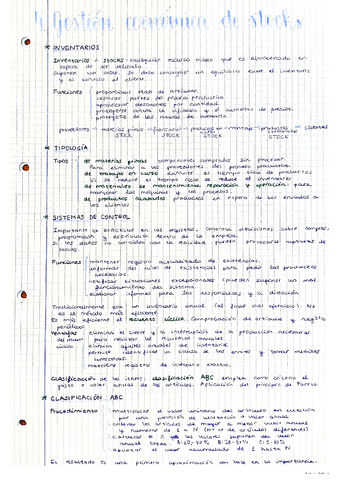 4. Gestión económica de stocks
* INVENTARIOS
Inventarios o stocks: cualquier recurso ocioso que es almacenado en
espera de ser utilizado.
Suponen un coste. Se debe conseguir un equilibrio entre el inventario
y el servicio al cliente.
Funciones
separar partes del proceso productivo
aprovechar descuentos por cantidad
protegerse contra la inflación y el aumento de precios.
protegerse de las roturas de inventario
proveedores → materias primas → fabricación → → montaje → productos → clientes
STOCK STOCK STOCK
* TIPOLOGÍA
Tipos
de materias primas: componentes comprados sin procesar.
Para eliminar a los proveedores del proceso productivo.
de trabajo en curso: durante el tiempo ciclo de productos
Si se reduce el tiempo ciclo se reduce el inventario.
de materiales de mantenimiento, reparación y operación: para
mantener las máquinas y los procesos.
de productos acabados: productos en espera de ser enviados a
los clientes
* SISTEMAS DE CONTROL
Importante la exactitud en los registros, control, decisiones sobre compras,
programación y distribución dentro de la empresa.
Si los datos no coinciden con la realidad pueden provocarse rupturas de
stocks.
Funciones
mantener registro actualizado de existencias.
informar del nivel de existencias para pedir los productos
necesarios.
notificar situaciones excepcionales (pueden suponer un mal
funcionamiento del sistema
elaborar informes para los responsables y la dirección
Tradicionalmente era un inventario anual (al final del ejercicio). No
es el método más eficiente.
Es más eficiente el recuento cíclico. Comprobación de artículos y registro
periódico.
Ventajas
elimina el cierre y la interrupción de la producción necesarias
para realizar los recuentos anuales
elimina ajustes anuales de inventario
permite identificar la causa de los errores y tomar medidas
correctivas.
mantiene registro de inventario exactos.
Clasificación de los items: clasificación ABC emplea como criterio el
gasto o valor anual de los artículos. Aplicación del principio de Pareto
* CLASIFICACIÓN ABC
Procedimiento
multiplicar el valor unitario del artículo en cuestión
por una previsión de utilización → valor anual
ordenar los artículos de mayor a menor valor anual
y numerar de 1 a N (N = nº de artículos diferentes)
calcular el % que los valores suponen del valor
anual total.
apuntar el valor acumulado de 1 hasta N
El resultado es una primera aproximación con base en la importancia.